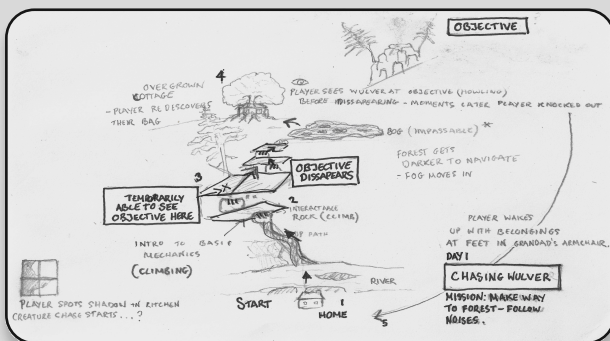 OBJECTIVE
4
OVERGROWN
COTTAGE
- PLAYER REDISCOVERS
THEIR BAG
PLAYER SEES WULVER AT OBJECTIVE (HOWLING)
BEFORE DISSAPEARING - MOMENTS LATER PLAYER KNOCKED OUT
BOG (IMPASSABLE) *
FOREST GETS
DARKER TO NAVIGATE
- FOG MOVES IN
OBJECTIVE
DISSAPEARS
3
TEMPORARILY
ABLE TO SEE
OBJECTIVE HERE
2
INTERACTABLE
ROCK (CLIMB)
UP PATH
INTRO TO BASIC
MECHANICS
(CLIMBING)
PLAYER WAKES
UP WITH BELONGINGS
AT FEET IN GRANDAD'S ARMCHAIR.
DAY 1
CHASING WULVER
MISSION: MAKE WAY
TO FOREST - FOLLOW
NOISES.
RIVER
START
1
HOME
5
PLAYER SPOTS SHADOW IN KITCHEN
CREATURE CHASE STARTS...?